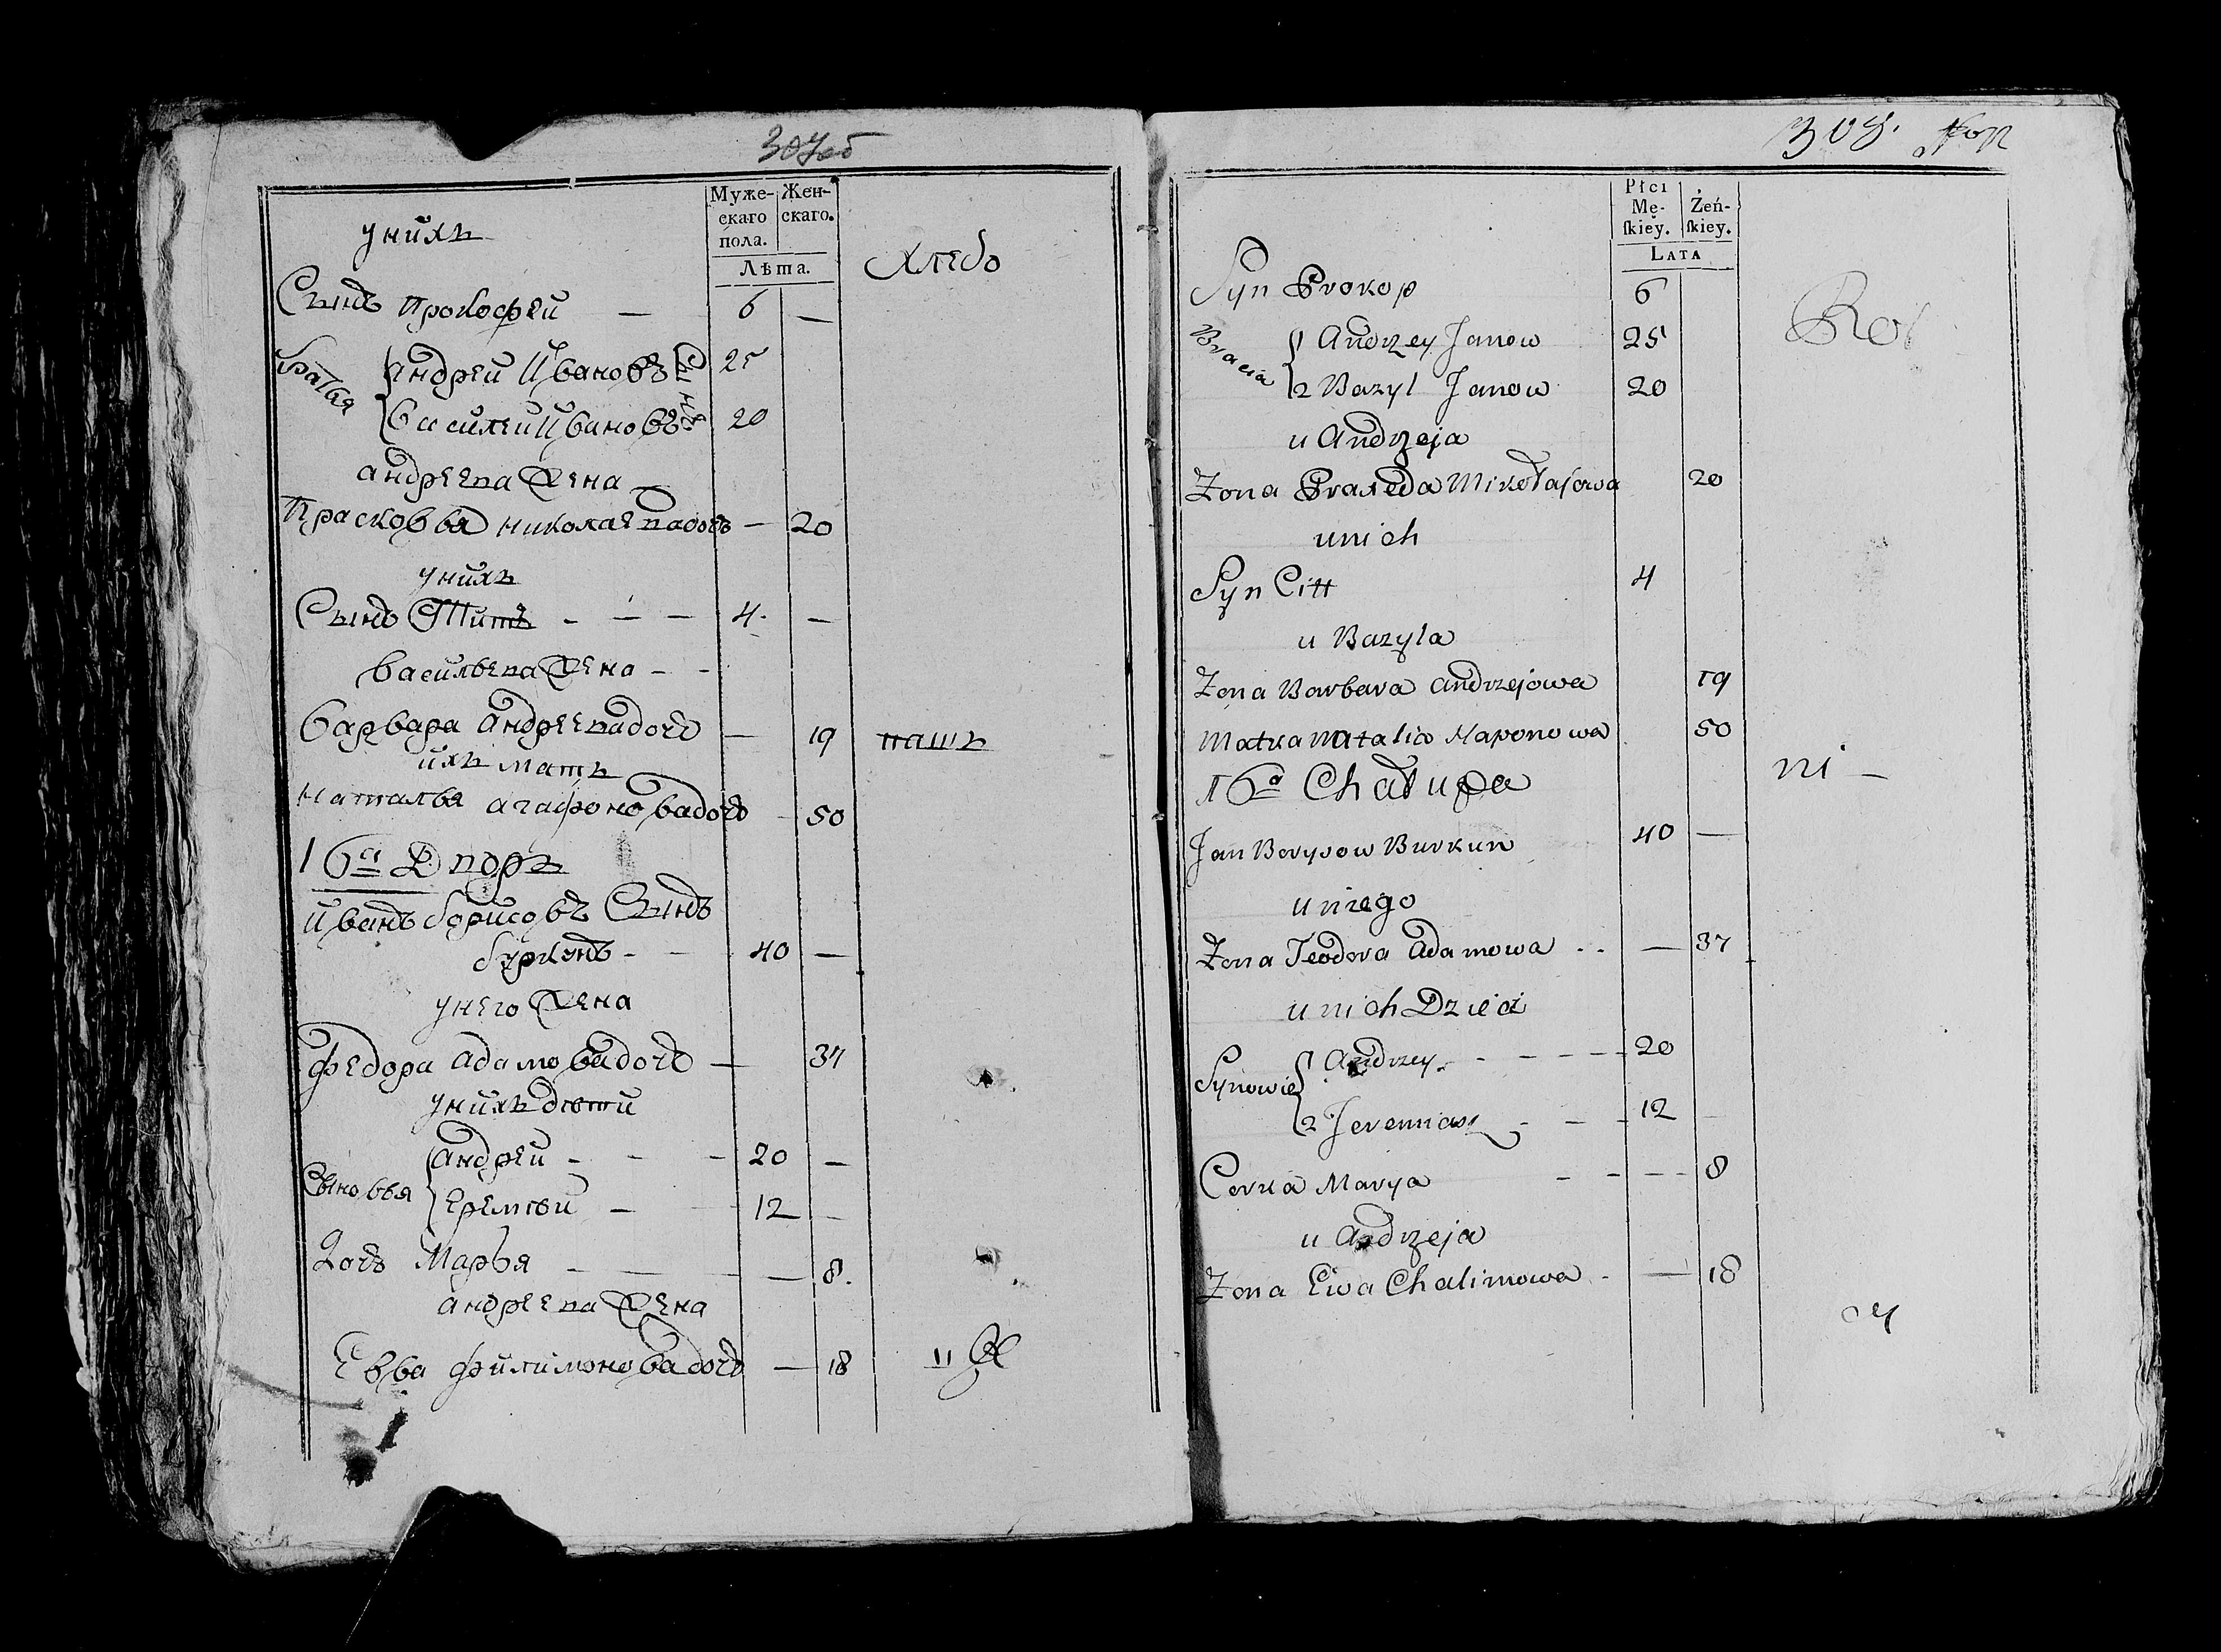 307об
Муже-
скаго
пола.
Жен-
скаго.
Лѣта.
унихъ
Хлебо
Сынъ Прокофей — 6 —
Братья
Андрей Ивановъ 25
Василей Ивановъ 20
Сыны
Андреева Жена —
Прасковья николаева дочь — 20
унихъ
Сынъ Титъ - — — 4. —
Васильева Жена - -
Варвара Андреева дочь — 19
пашъ
ихъ мать
Наталья агафонова дочь - 50
16й Дворъ
Иванъ борисовъ Сынъ
буркунъ - — 40 —
унего Жена
Федора адамова дочь — 37
унихъ дѣти
Сыновья
Андрей - - - 20 —
Еремѣй — - 12 —
Дочь Марья — — — — 8.
андреева Жена
Евва филимонова дочь — 18
308.
Płci
Mę-
skiey.
Żeń-
skiey.
LATA
Rol
Syn Prokop 6
Bracia
1 Andrzey Janow 25
2 Bazyl Janow 20
u Andrzeja
Zona Praxeda Mikołajowa 20
unich
Syn Citt 4
u Bazyla
Zona Barbara Andrzejowa 19
Matka Natalia Haponowa 50
ni —
16a Chałupa
Jan Borysow Burkun 40 —
u niego
Zona Teodora Adamowa - - — 37
u nich Dzieci
Synowie
1 Andrzey - - - - - 20
2 Jeremiasz - - - 12
Corka Marya - - - - - 8
u Andrzeja
Zona Ewa Chalimowa - — 18